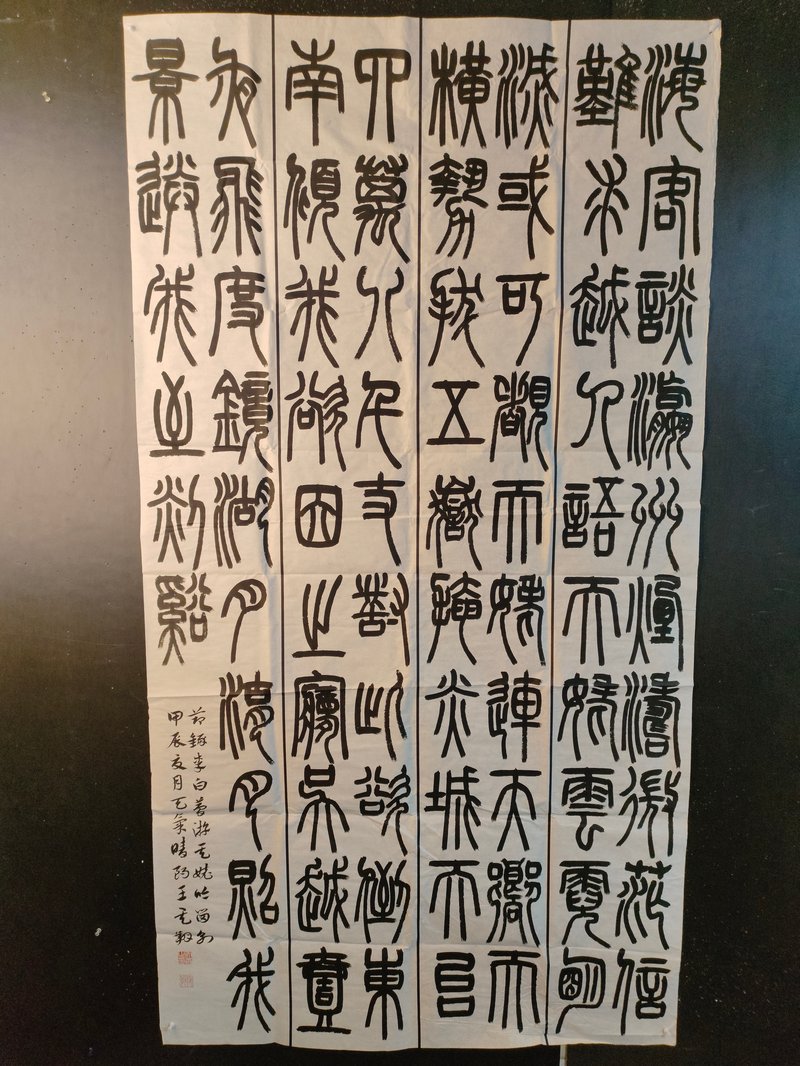 海客談瀛州煙濤微茫信
難求越人語天姥雲霞明
滅或可覩天姥連天嚮天
橫勢拔五嶽掩赤城天台
四萬八千丈對此欲倒東
南傾我欲因之夢吳越壹
夜飛度鏡湖月湖月照我
景送我至剡谿
節錄李白夢游天姥吟留別
甲辰夏月天氣晴